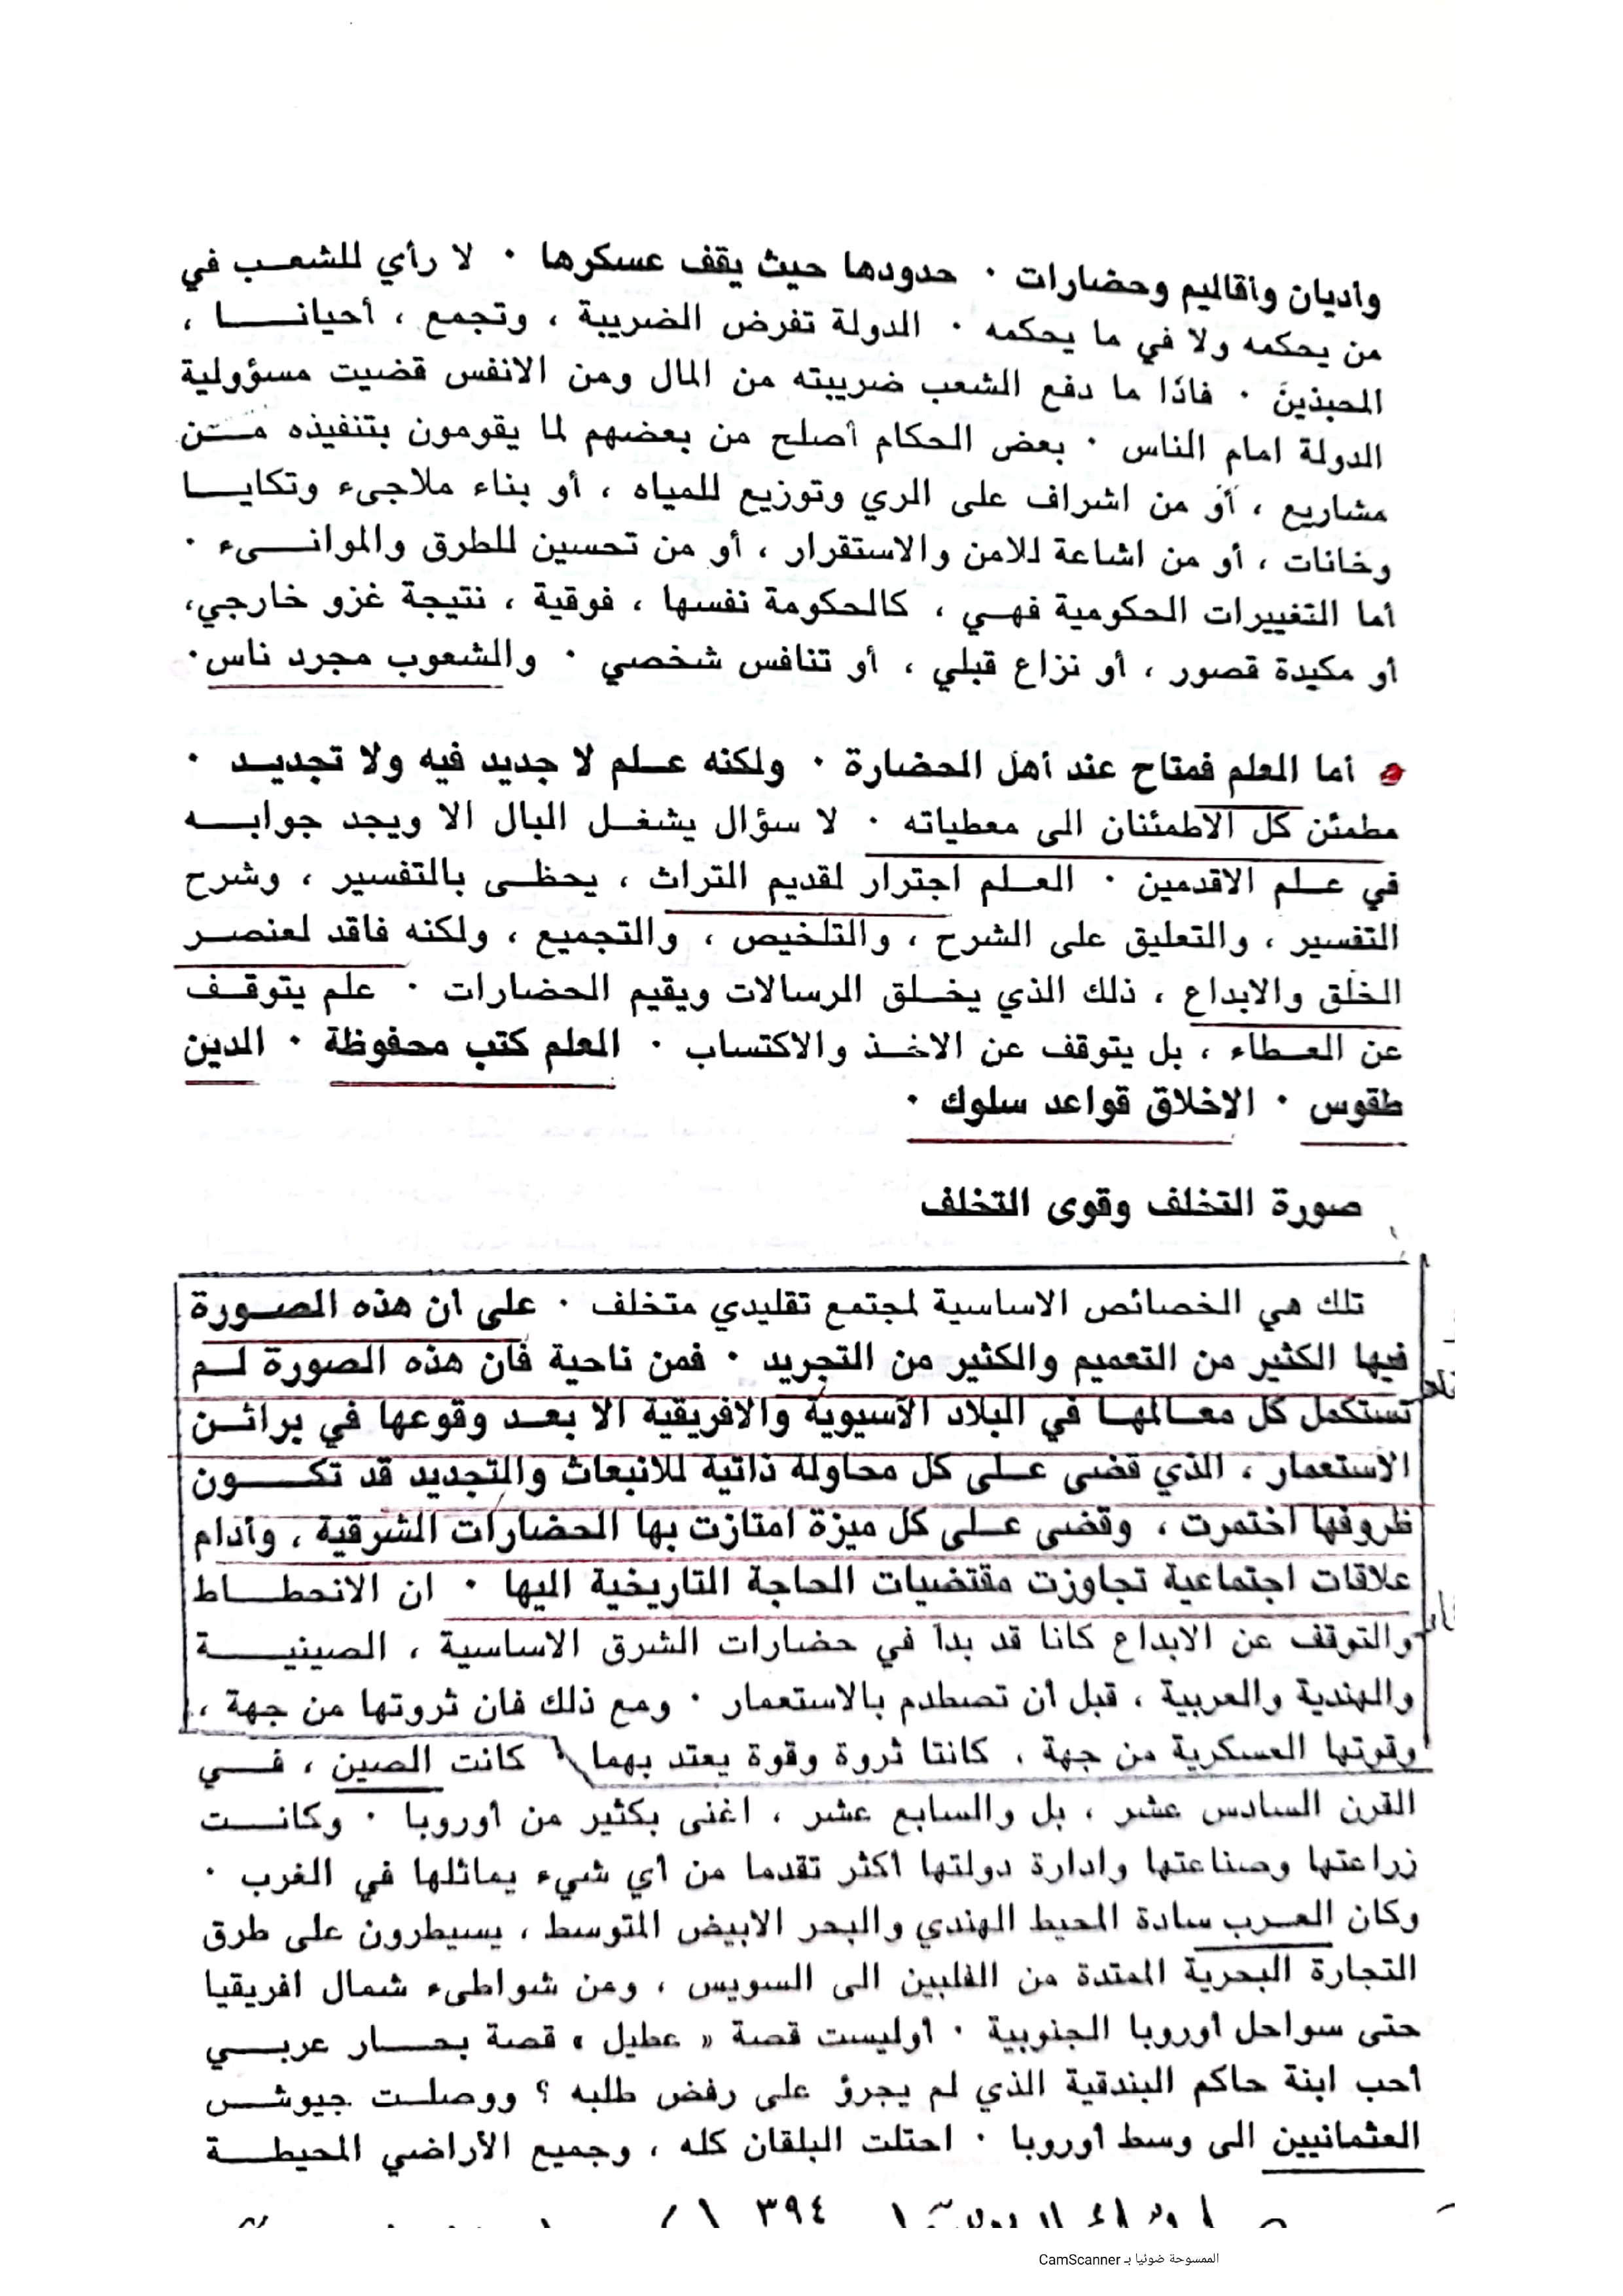 وأديان وأقاليم وحضارات ٠ حدودها حيث يقف عسكرها ٠ لا رأي للشعب في
من يحكمه ولا في ما يحكمه ٠ الدولة تفرض الضريبة ، وتجمع ، أحيانا ،
المحبذين ٠ فاذا ما دفع الشعب ضريبته من المال ومن الانفس قضيت مسؤولية
الدولة امام الناس ٠ بعض الحكام أصلح من بعضهم لما يقومون بتنفيذه من
مشاريع ، أو من اشراف على الري وتوزيع للمياه ، أو بناء ملاجىء وتكايا
وخانات ، أو من اشاعة للامن والاستقرار ، أو من تحسين للطرق والموانىء ٠
أما التغييرات الحكومية فهي ، كالحكومة نفسها ، فوقية ، نتيجة غزو خارجي،
أو مكيدة قصور ، أو نزاع قبلي ، أو تنافس شخصي ٠ والشعوب مجرد ناس٠
أما العلم فمتاح عند أهل الحضارة ٠ ولكنه علم لا جديد فيه ولا تجديد ٠
مطمئن كل الاطمئنان الى معطياته ٠ لا سؤال يشغل البال الا ويجد جوابه
في علم الاقدمين ٠ العلم اجترار لقديم التراث ، يحظى بالتفسير ، وشرح
التفسير ، والتعليق على الشرح ، والتلخيص ، والتجميع ، ولكنه فاقد لعنصر
الخلق والابداع ، ذلك الذي يخلق الرسالات ويقيم الحضارات ٠ علم يتوقف
عن العطاء ، بل يتوقف عن الاخذ والاكتساب ٠ العلم كتب محفوظة ٠ الدين
طقوس ٠ الاخلاق قواعد سلوك ٠
صورة التخلف وقوى التخلف
تلك هي الخصائص الاساسية لمجتمع تقليدي متخلف ٠ على ان هذه الصورة
فيها الكثير من التعميم والكثير من التجريد ٠ فمن ناحية فان هذه الصورة لم
تستكمل كل معالمها في البلاد الآسيوية والافريقية الا بعد وقوعها في براثن
الاستعمار ، الذي قضى على كل محاولة ذاتية للانبعاث والتجديد قد تكون
ظروفها اختمرت ، وقضى على كل ميزة امتازت بها الحضارات الشرقية ، وأدام
علاقات اجتماعية تجاوزت مقتضيات الحاجة التاريخية اليها ٠ ان الانحطاط
والتوقف عن الابداع كانا قد بدآ في حضارات الشرق الاساسية ، الصينية
والهندية والعربية ، قبل أن تصطدم بالاستعمار ٠ ومع ذلك فان ثروتها من جهة ،
وقوتها العسكرية من جهة ، كانتا ثروة وقوة يعتد بهما كانت الصين ، في
القرن السادس عشر ، بل والسابع عشر ، اغنى بكثير من أوروبا ٠ وكانت
زراعتها وصناعتها وادارة دولتها أكثر تقدما من أي شيء يماثلها في الغرب ٠
وكان العرب سادة المحيط الهندي والبحر الابيض المتوسط ، يسيطرون على طرق
التجارة البحرية الممتدة من الفلبين الى السويس ، ومن شواطىء شمال افريقيا
حتى سواحل أوروبا الجنوبية ٠ أوليست قصة « عطيل » قصة بحار عربي
أحب ابنة حاكم البندقية الذي لم يجرؤ على رفض طلبه ؟ ووصلت جيوش
العثمانيين الى وسط أوروبا ٠ احتلت البلقان كله ، وجميع الأراضي المحيطة
٣٩٤
الممسوحة ضوئيا بـ CamScanner